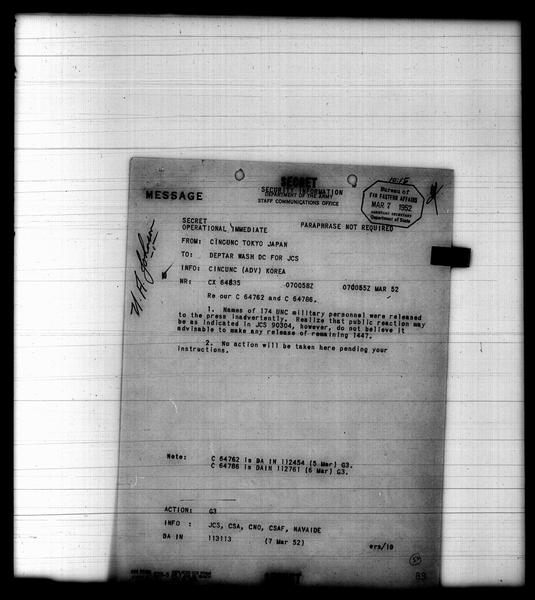 10:15
SECRET
SECURITY INFORMATION
DEPARTMENT OF THE ARMY
STAFF COMMUNICATIONS OFFICE
MESSAGE
Bureau of
FAR EASTERN AFFAIRS
MAR 7 1952
ASSISTANT SECRETARY
Department of State
SECRET
OPERATIONAL IMMEDIATE
PARAPHRASE NOT REQUIRED
U. A. Johnson
FROM: CINCUNC TOKYO JAPAN
TO: DEPTAR WASH DC FOR JCS
INFO: CINCUNC (ADV) KOREA
NR: CX 64835 070058Z 070055Z MAR 52
Re our C 64762 and C 64786.
1. Names of 174 UNC military personnel were released
to the press inadvertently. Realize that public reaction may
be as indicated in JCS 90304, however, do not believe it
advisable to make any release of remaining 1447.
2. No action will be taken here pending your
instructions.
Note: C 64762 is DA IN 112454 (5 Mar) G3.
C 64786 is DAIN 112761 (6 Mar) G3.
ACTION: G3
INFO : JCS, CSA, CNO, CSAF, NAVAIDE
DA IN 113113 (7 Mar 52)
ers/18
SECRET